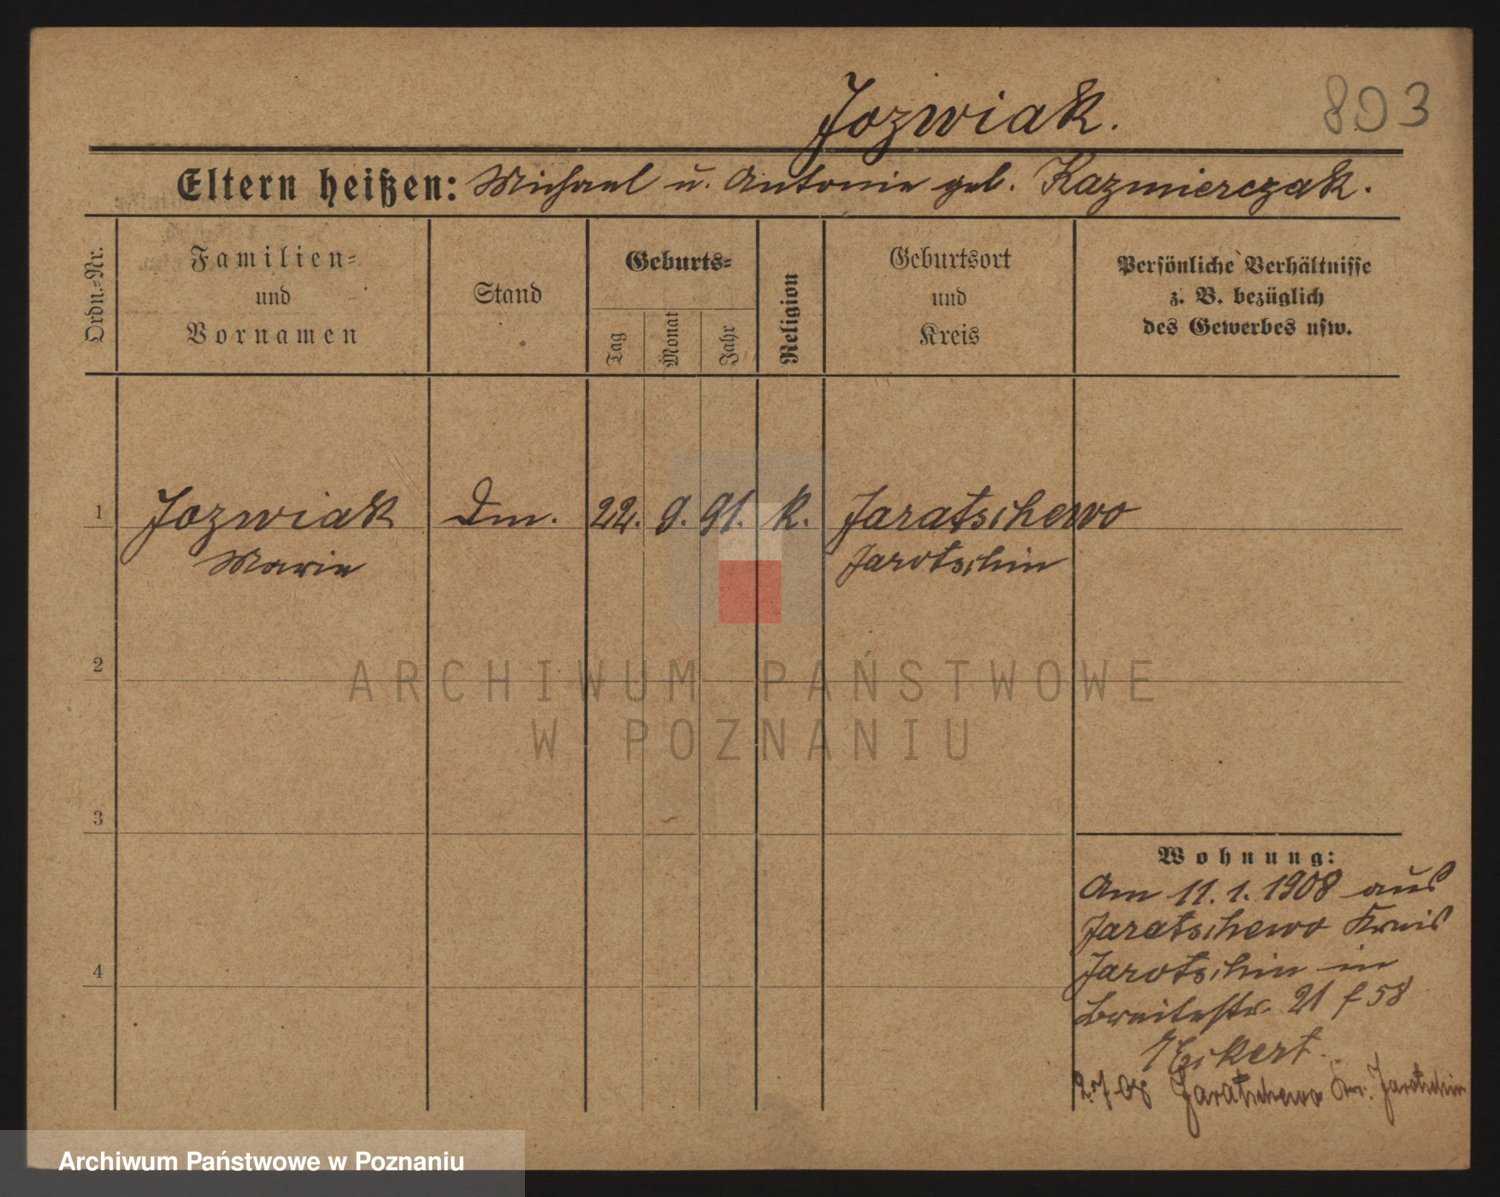 Jozwiak.
803
Eltern heißen: Michael u. Antonie geb. Kazmierczak.
Ordn.-Nr.
Familien-
und
Vornamen
Stand
Geburts-
Tag
Monat
Jahr
Religion
Geburtsort
und
Kreis
Persönliche Verhältnisse
z. B. bezüglich
des Gewerbes usw.
1
Jozwiak
Marie
Dm.
22. 9. 91.
k.
Jaratschewo
Jarotschin
2
3
4
Wohnung:
Am 11. 1. 1908 aus
Jaratschewo Kreis
Jarotschin in
Breitestr. 21 f 58
Eikert.
2.7.08 Jaratschewo Kr. Jarotschin
ARCHIWUM PAŃSTWOWE
W POZNANIU
Archiwum Państwowe w Poznaniu